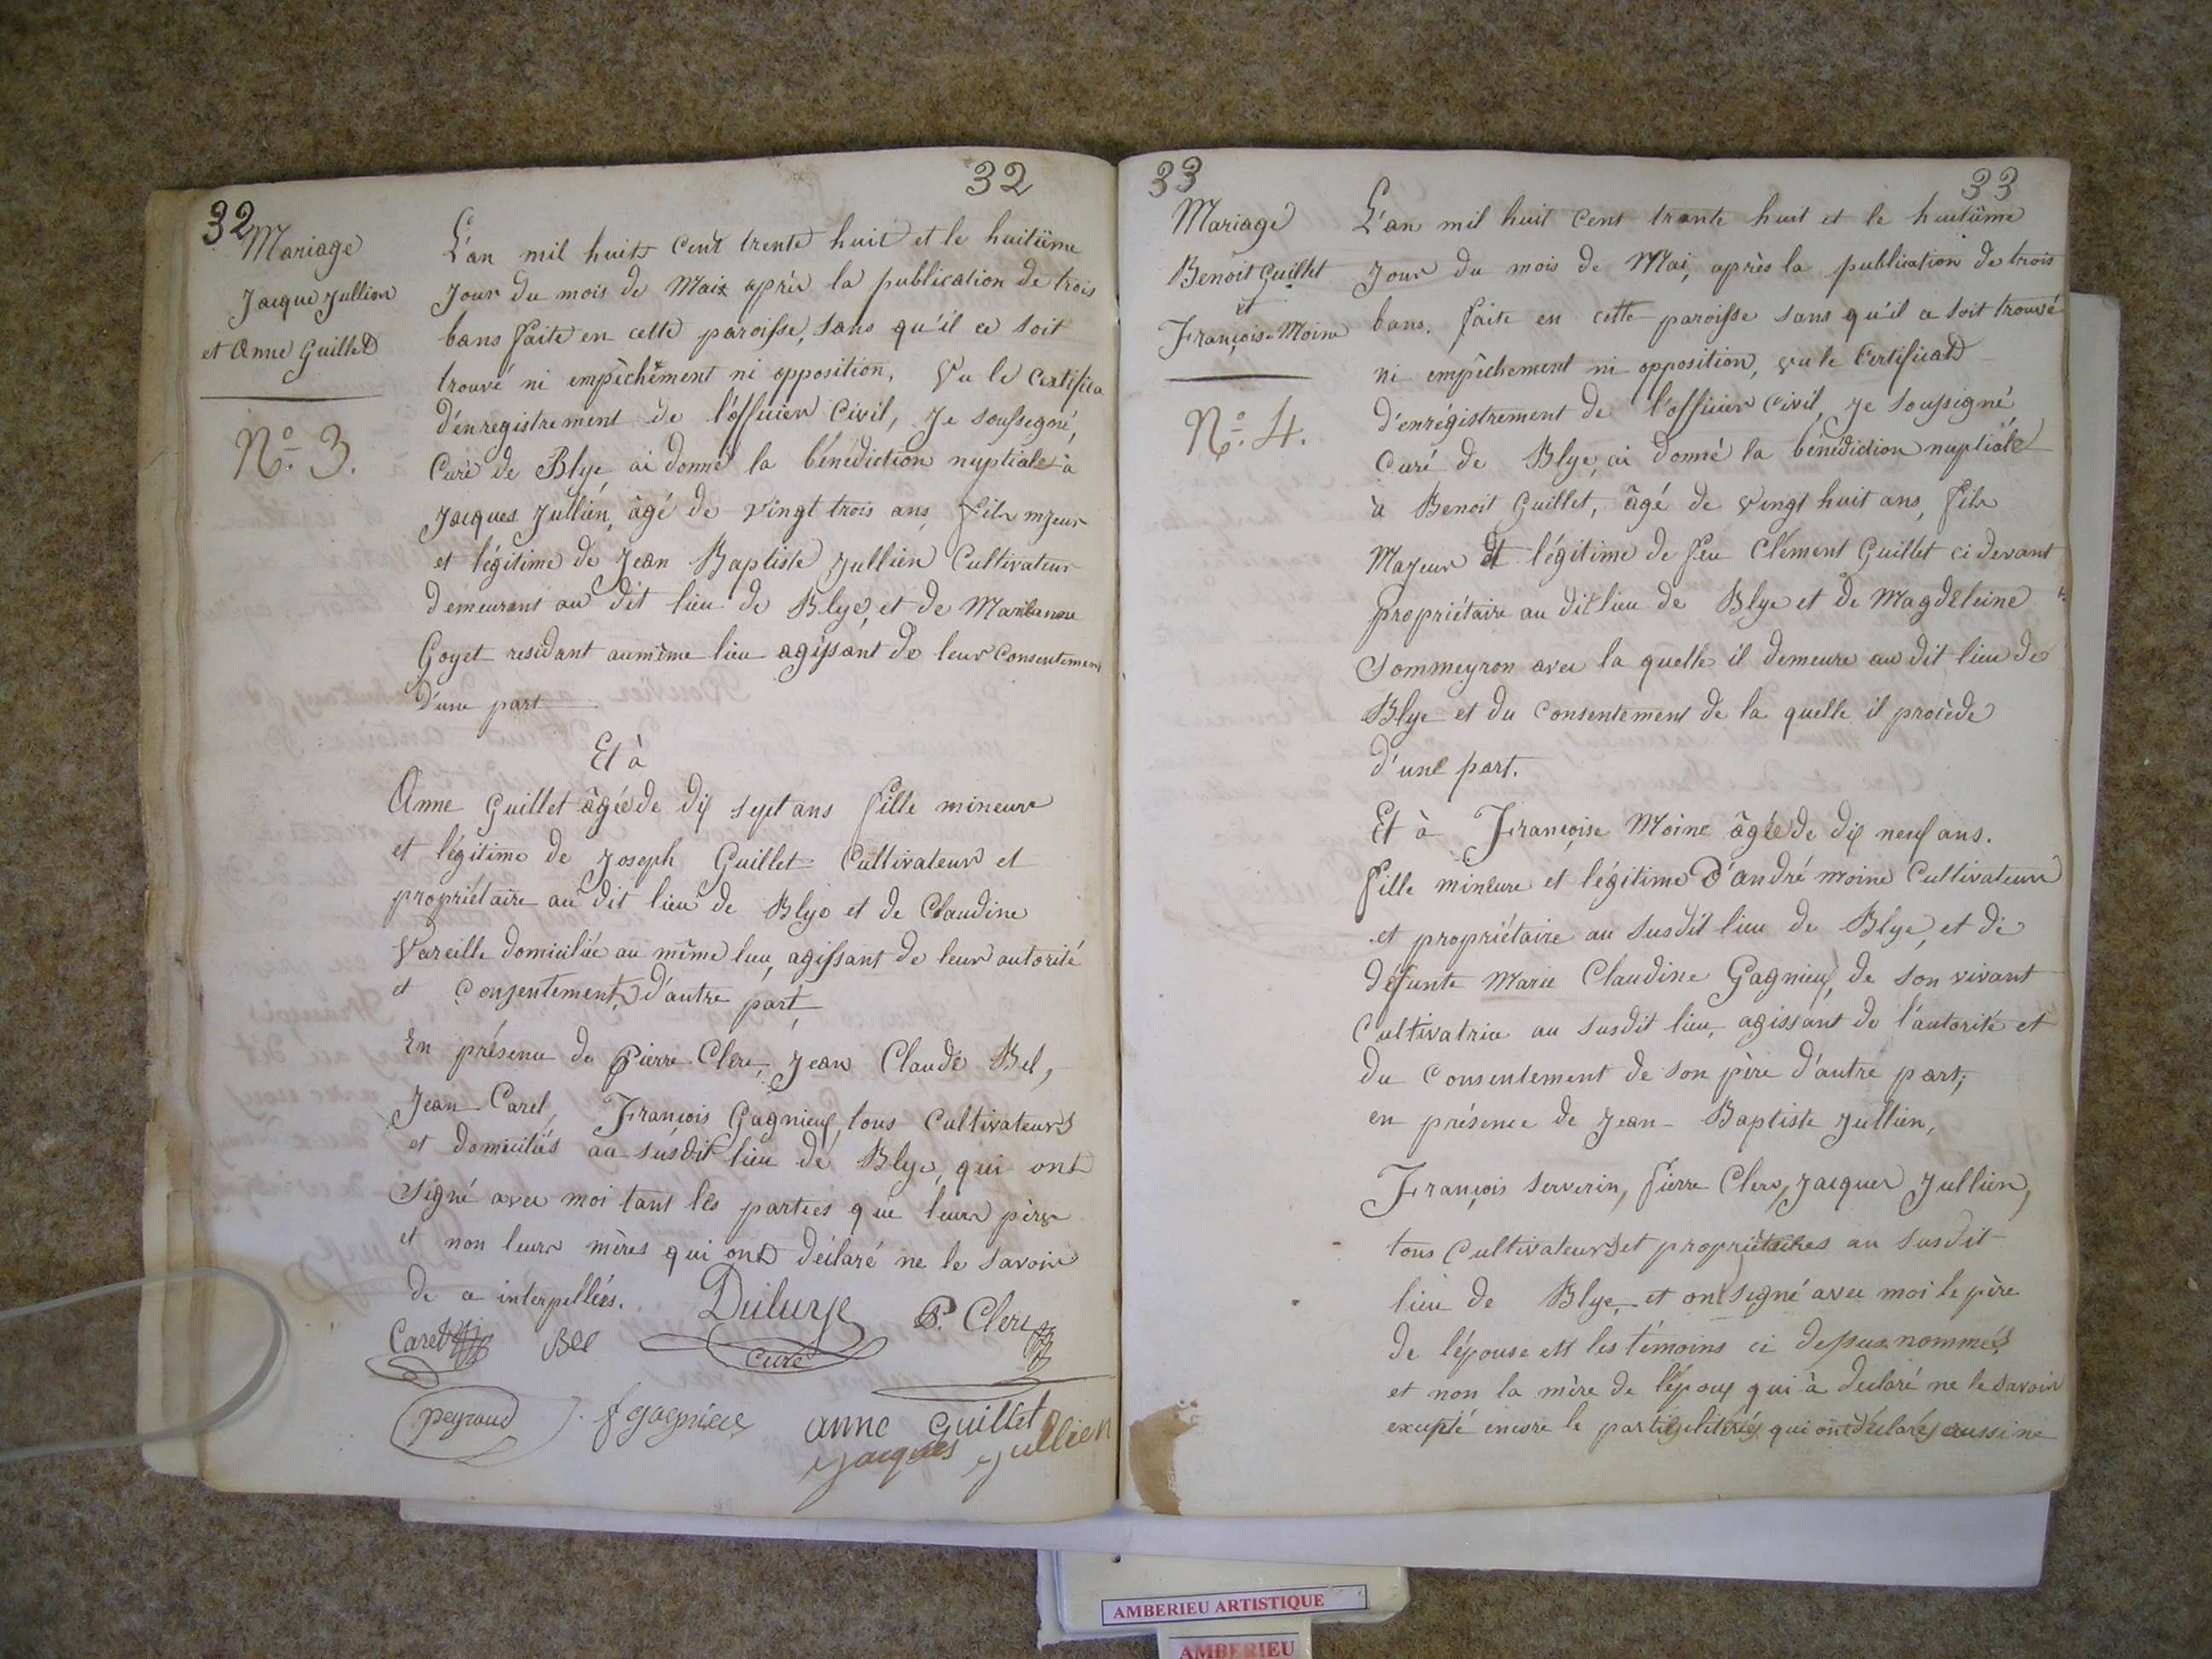 32
32
Mariage
Jacque Jullien
et Anne Guillet
N.o 3.
L'an mil huit cent trente huit et le huitiéme
Jour du mois de Mai après la publication de trois
bans faite en cette paroisse, sans qu'il ce soit
trouvé ni empêchement ni opposition, Vu le certifica
d'enregistrement de l'officier Civil, Je soussegné,
Curé de Blye, ai donné la bénédiction nuptiale à
Jacques Jullien, âgé de vingt trois ans, fils mjeur
et légitime de Jean Baptiste Jullien Cultivateur
demeurant au dit lieu de Blye, et de
Goyet residant au même lieu agissant de leur consentement
d'une part
Et à
Anne Guillet âgée de dix sept ans fille mineure
et légitime de Joseph Guillet Cultivateur et
propriétaire au dit lieu de Blye et de Claudine
Vareille domiciliée au même lieu, agissant de leur autorité
et consentement, d'autre part,
En présence de Pierre Clere, Jean Claude Bel,
Jean Carel, François Gagnieux, tous cultivateurs
et domiciliés au susdit lieu de Blye, qui ont
signé avec moi tant les parties que leurs pères
et non leurs mères qui ont déclaré ne le savoir
de ce interpellées.
Carel Bel curé P. Clere
peyraud J. f gagnieux anne Guillet
Jacques Jullien
33
33
Mariage
Benoit Guillet
et
Françoise Moine
N.o 4.
L'an mil huit cent trante huit et le huitiéme
Jour du mois de Mai, après la publication de trois
bans, faite en cette paroisse sans qu'il ce soit trouvé
ni empêchement ni opposition, vu le Certificat
d'enrégistrement de l'officier civil, Je soussigné,
Curé de Blye, ai donné la bénédiction nuptiale
à Benoit Guillet, âgé de vingt huit ans, fils
Majeur et légitime de feu Clément Guillet ci devant
propriétaire au dit lieu de Blye et de Magdeleine
Sommeyron avec la quelle il demeure au dit lieu de
Blye et du consentement de la quelle il procède
d'une part.
Et à Françoise Moine âgée de dix neuf ans.
fille mineure et légitime d'andré moine Cultivateur
et propriétaire au susdit lieu de Blye, et de
défunte Marie Claudine Gagnieux, de son vivant
Cultivatrice au susdit lieu, agissant de l'autorité et
du consentement de son père d'autre part;
en présence de Jean-Baptiste Jullien,
François Serverin, Pierre Clere, Jacques Jullien,
tous Cultivateurs et propriétaires au susdit
lieu de Blye, et ont signé avec moi le père
de l'épouse et les témoins ci dessus nommés
et non la mère de l'époux qui à déclaré ne le savoir
excepté encore le qui ont déclarés aussi ne
AMBERIEU ARTISTIQUE
AMBERIEU